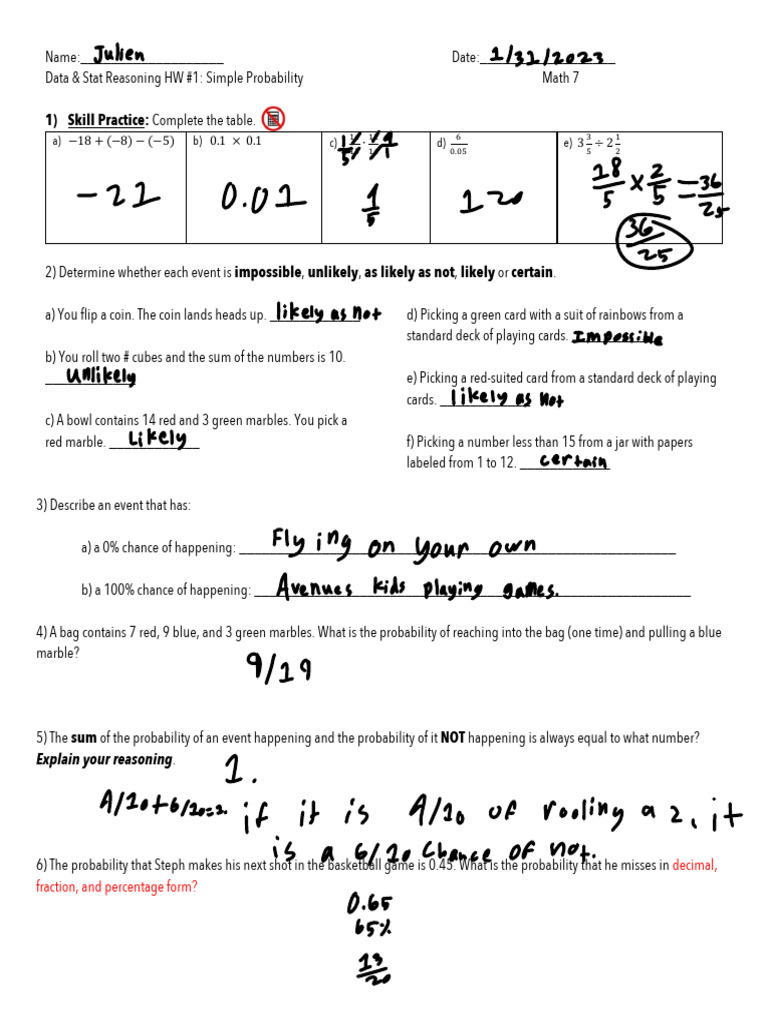 Name: Julien Date: 1/31/2023
Data & Stat Reasoning HW #1: Simple Probability Math 7
1) Skill Practice: Complete the table.
a) −18 + (−8) − (−5) b) 0.1 × 0.1 c) d) 6/0.05 e) 3 3/5 ÷ 2 1/2
-21 0.01 1/5 120 18/5 × 2/5 = 36/25
36/25
2) Determine whether each event is impossible, unlikely, as likely as not, likely or certain.
a) You flip a coin. The coin lands heads up. likely as not
b) You roll two # cubes and the sum of the numbers is 10.
Unlikely
c) A bowl contains 14 red and 3 green marbles. You pick a
red marble. Likely
d) Picking a green card with a suit of rainbows from a
standard deck of playing cards. Impossible
e) Picking a red-suited card from a standard deck of playing
cards. likely as not
f) Picking a number less than 15 from a jar with papers
labeled from 1 to 12. certain
3) Describe an event that has:
a) a 0% chance of happening: Flying on your own
b) a 100% chance of happening: Avenues kids playing games.
4) A bag contains 7 red, 9 blue, and 3 green marbles. What is the probability of reaching into the bag (one time) and pulling a blue
marble?
9/19
5) The sum of the probability of an event happening and the probability of it NOT happening is always equal to what number?
Explain your reasoning.
1.
4/10+6/10=1 if it is 4/10 of rooling a 2, it
is a 6/10 chance of not.
6) The probability that Steph makes his next shot in the basketball game is 0.45. What is the probability that he misses in decimal,
fraction, and percentage form?
0.65
65%
13/20